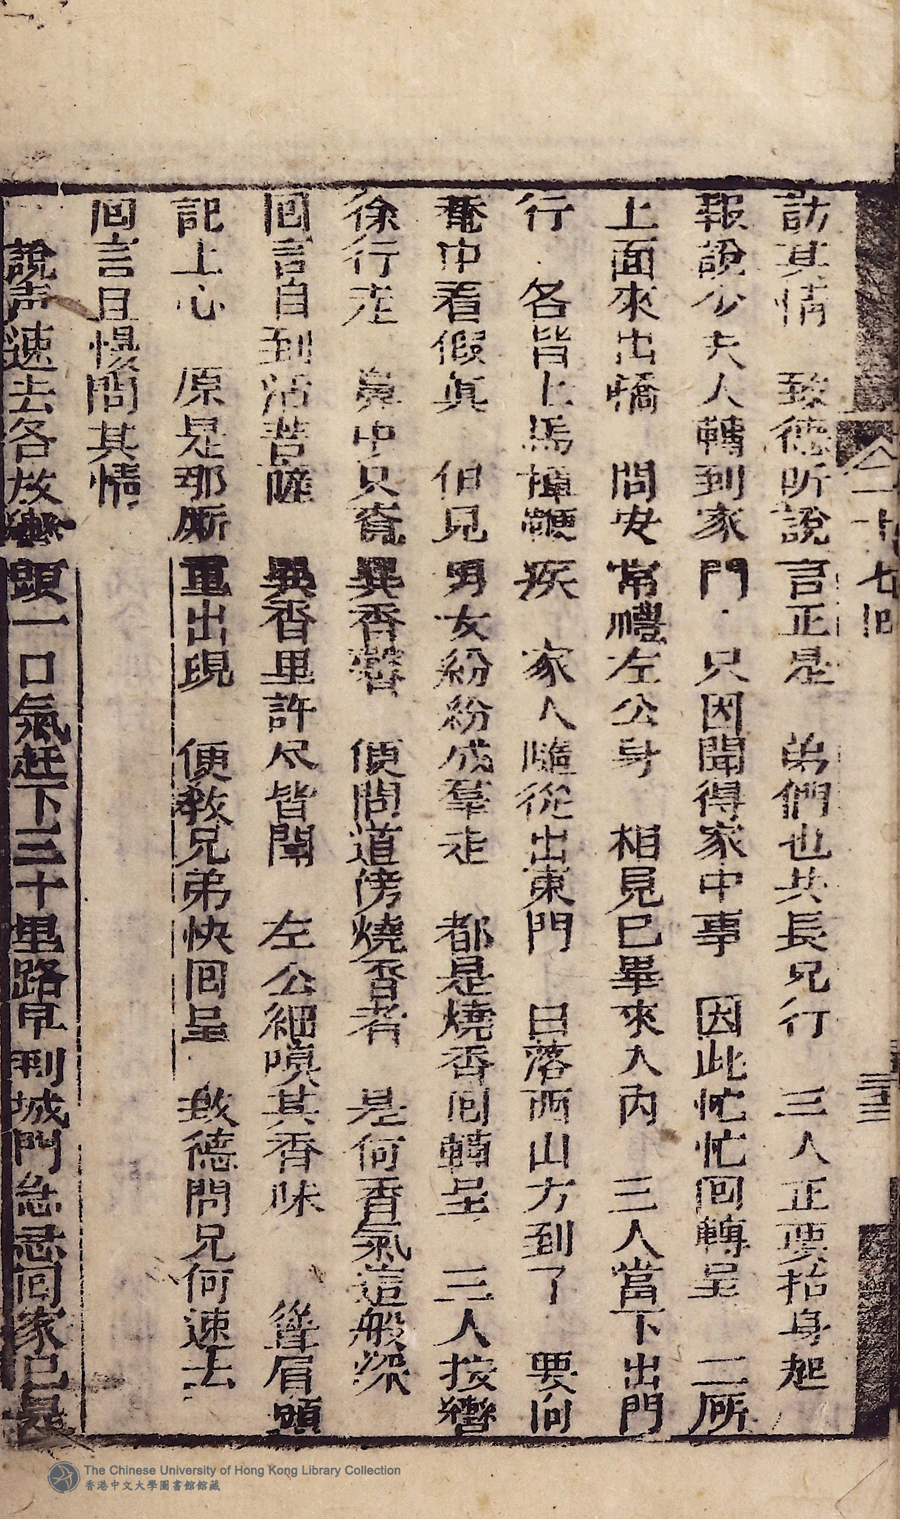 二十七回
三十三
訪其情　致德听說言正是　弟們也共長兄行　三人正要抬身起
報說公夫人轉到家門　只因聞得家中事　因此忙忙回轉呈　二厮
上面來出轎　問安常禮左公身　相見已畢來入內　三人當下出門
行　各皆上馬撣鞭疾　家人隨從出東門　日落西山方到了　要向
菴中看假真　但見男女紛紛成羣走　都是燒香回轉呈　三人按轡
徐行走　鼻中只覔異香馨　便問道傍燒香者　是何香氣這般深
回言自到活菩薩　異香里許尽皆聞　左公細嗅其香味　聳眉頭
記上心　原是那厮重出現　便教兄弟快回呈　致德問兄何速去
回言且慢問其情
說声速去各放轡頭一口氣赶下三十里路早到城門急忌回家已是
The Chinese University of Hong Kong Library Collection
香港中文大學圖書館館藏